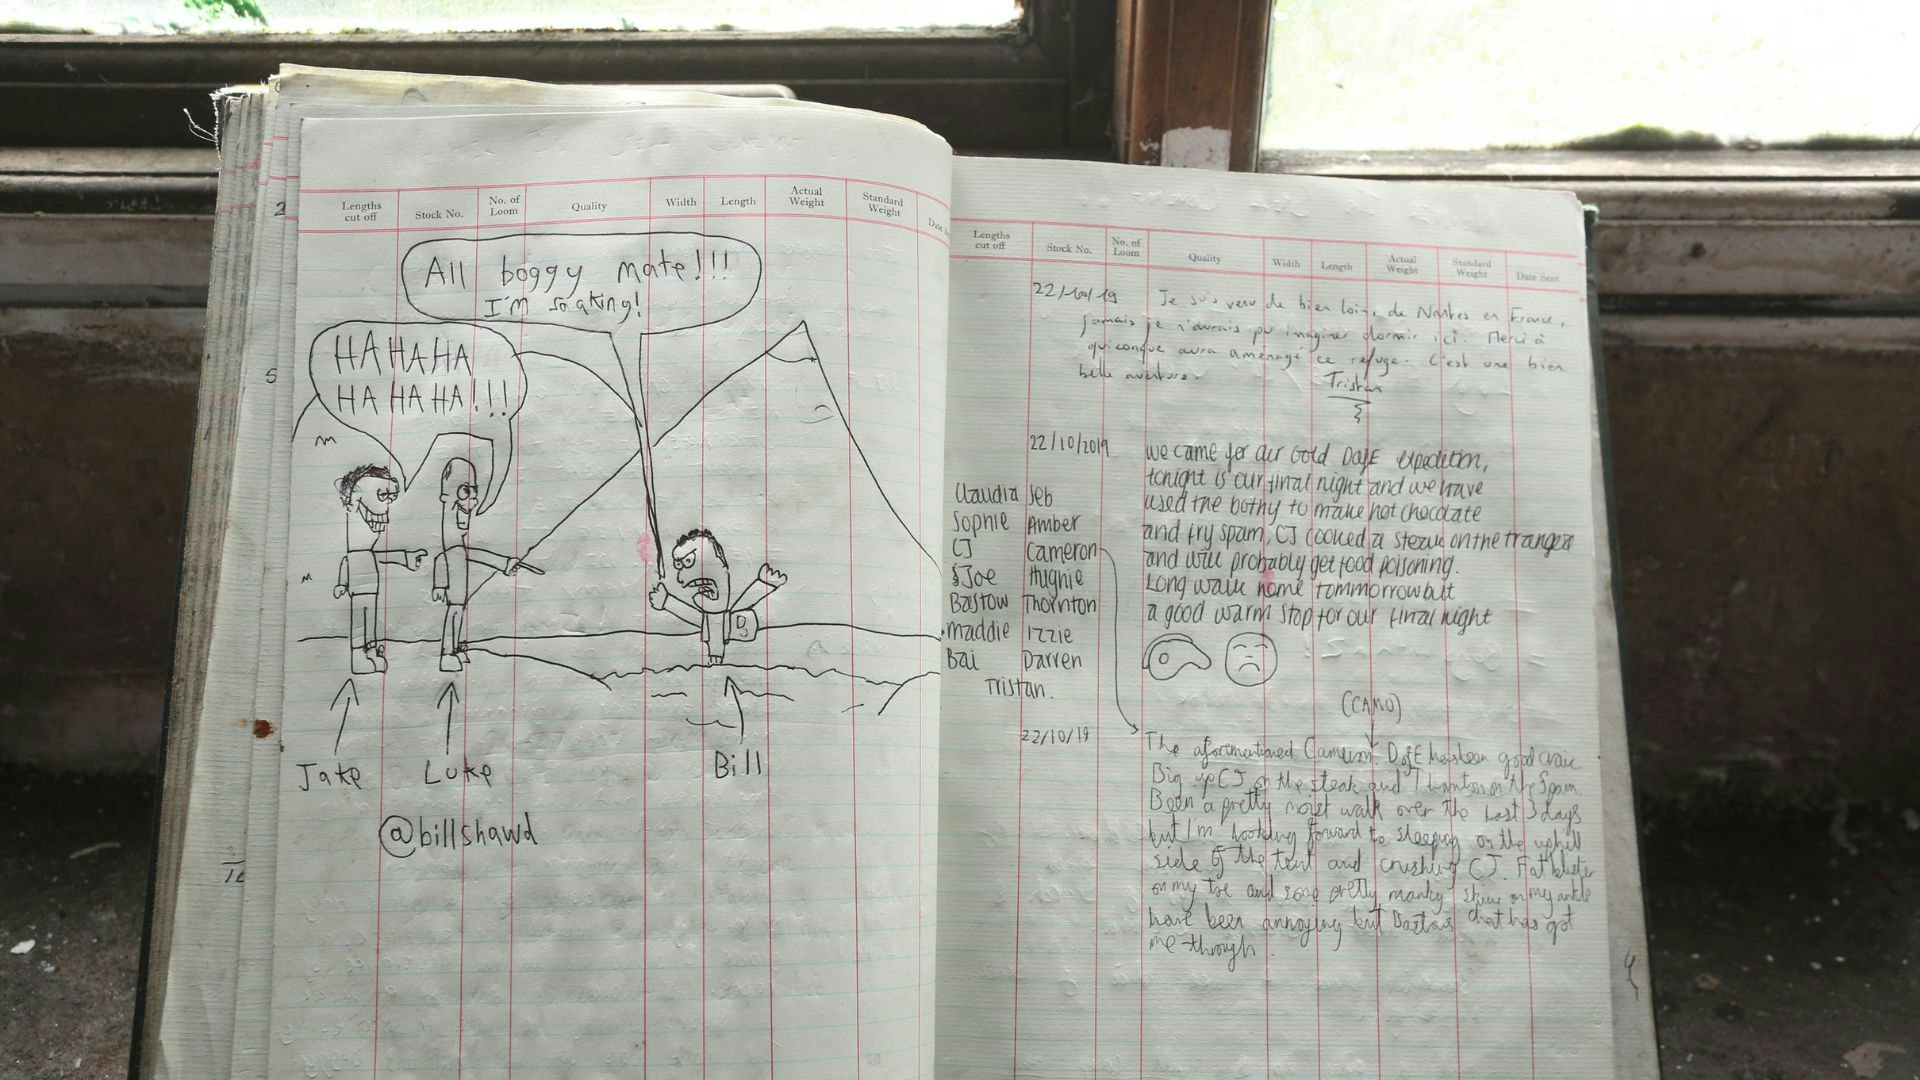 Lengths cut off
Stock No.
No. of Loom
Quality
Width
Length
Actual Weight
Standard Weight
All boggy mate!!!
I'm soaking!
HA HA HA
HA HA HA!!!
Jake
Luke
Bill
@billshawd
Lengths cut off
Stock No.
No. of Loom
Quality
Width
Length
Actual Weight
Standard Weight
Date Sent
22/10/19
Je suis venu de bien loin, de Nantes en France,
jamais je n'aurais pu imaginer dormir ici. Merci à
quiconque aura aménagé ce refuge. C'est une bien
belle aventure.
Tristan
22/10/2019
we came for our Gold DofE expedition,
tonight is our final night and we have
used the bothy to make hot chocolate
and fry spam, CJ cooked a steak on the trangea
and will probably get food poisoning.
Long walk home tommorrow but
a good warm stop for our final night
Claudia Seb
Sophie Amber
CJ Cameron
Joe Hughie
Bastow Thornton
Maddie Izzie
Bai Darren
Tristan.
(CAMO)
22/10/19
The aforementioned Cameron. DofE has been good craic.
Big up CJ on the steak and Thornton on the Spam.
Been a pretty moist walk over the last 3 days
but I'm looking forward to sleeping on the uphill
side of the tent and crushing CJ. Fat blister
on my toe and some pretty manky skin on my ankle
have been annoying but Bastows chat has got
me through.